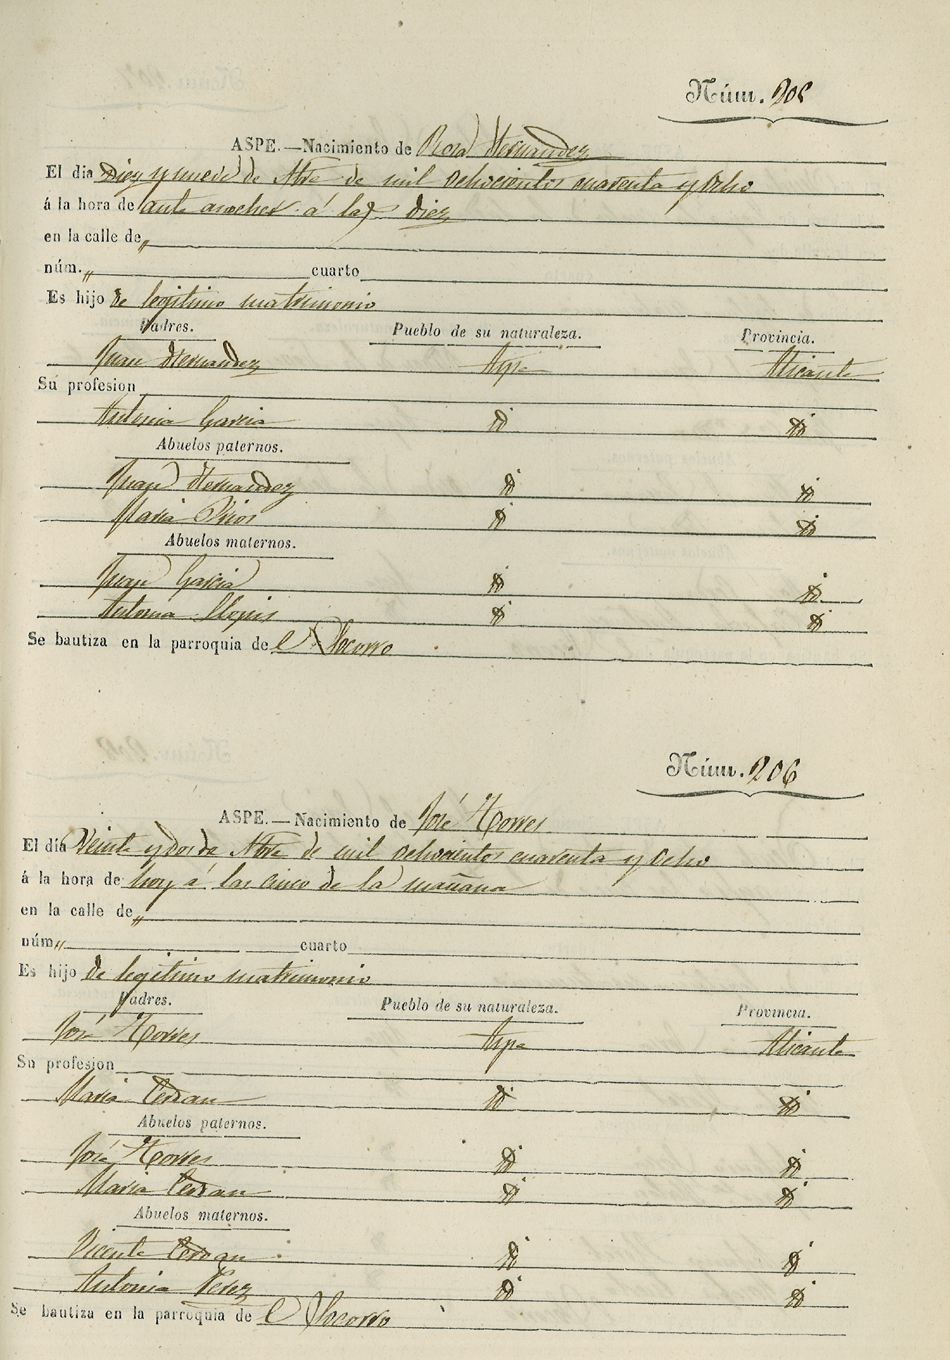 Núm. 205
ASPE.—Nacimiento de Rosa Hernandez
El dia Diez y nueve de Nbre de mil ochocientos cuarenta y ocho
á la hora de ante anoche á las diez
en la calle de „
núm. „ cuarto
Es hijo de legitimo matrimonio
Padres. Pueblo de su naturaleza. Provincia.
Juan Hernandez Aspe Alicante
Su profesion
Antonia Garcia id id
Abuelos paternos.
Juan Hernandez id id
Maria id id
Abuelos maternos.
Juan Garcia id id
Antonia Llopis id id
Se bautiza en la parroquia de el Socorro
Núm. 206
ASPE.—Nacimiento de José Torres
El día Veinte y dos de Nbre de mil ochocientos cuarenta y ocho
á la hora de hoy á las cinco de la mañana
en la calle de „
núm „ cuarto
Es hijo de legitimo matrimonio
Padres. Pueblo de su naturaleza. Provincia.
José Torres Aspe Alicante
Su profesion
Maria Cerdan id id
Abuelos paternos.
José Torres id id
Maria Cerdan id id
Abuelos maternos.
Vicente Cerdan id id
Antonia Perez id id
Se bautiza en la parroquia de el Socorro